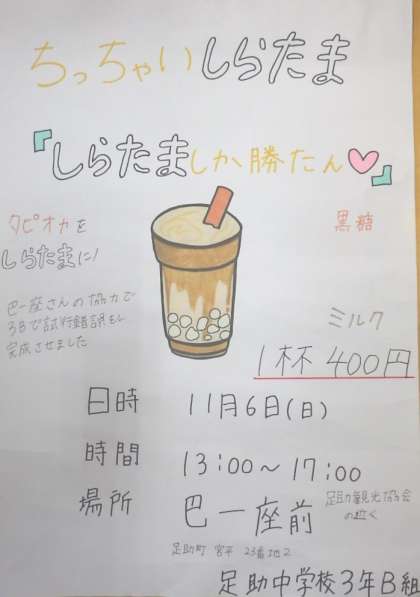 ちっちゃいしらたま
『しらたましか勝たん♡』
タピオカを
しらたまに!
黒糖
巴一座さんの協力で
3Bで試行錯誤し
完成させました
ミルク
1杯 400円
日時 11月6日(日)
時間 13:00~17:00
場所 巴一座前
足助観光協会
の近く
足助町 宮平 23番地2
足助中学校3年B組